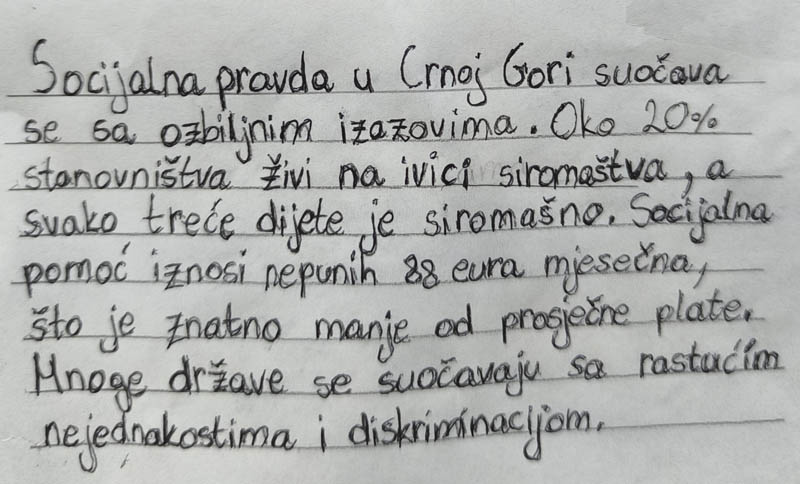 Socijalna pravda u Crnoj Gori suočava
se sa ozbiljnim izazovima. Oko 20%
stanovništva živi na ivici siromaštva, a
svako treće dijete je siromašno. Socijalna
pomoć iznosi nepunih 88 eura mjesečna,
što je znatno manje od prosječne plate.
Mnoge države se suočavaju sa rastućim
nejednakostima i diskriminacijom.